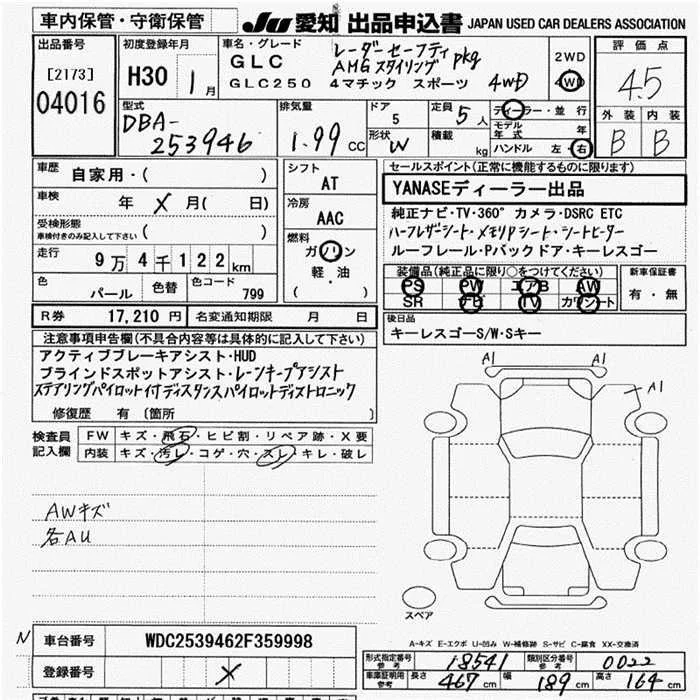 車内保管・守衛保管
JU 愛知 出品申込書 JAPAN USED CAR DEALERS ASSOCIATION
出品番号
[2173]
04016
初度登録年月
H30 1月
車名・グレード
GLC レーダーセーフティpkg
AMGスタイリング
GLC250 4マチック スポーツ 4WD
2WD
4WD
評価点
4.5
外装 内装
B B
型式
DBA-
253946
排気量
1.99 CC
ドア
5
形状
W
定員
5人
積載
kg
ディーラー・並行
モデル年式 年
ハンドル 左・右
車歴
自家用・( )
車検
年 メ 月( 日)
受検形態
車検付きのみ記入して下さい ( )
走行
9万4千122km
色
パール
色替
色コード
799
シフト
AT
冷房
AAC
燃料
ガソリン
軽・油
( )
セールスポイント(正常に機能するものに限ります)
YANASEディーラー出品
純正ナビ・TV・360°カメラ・DSRC ETC
ハーフレザーシート・メモリPシート・シートヒーター
ルーフレール・Pバックドア・キーレスゴー
装備品(純正品に限り○をつけてください)
PS PW エアB AW
SR ナビ TV カワシート
新車保証書
有・無
R券 17,210円
名変通知期限 月 日
後日品
キーレスゴーS/W・Sキー
注意事項申告欄(不具合内容等は具体的に記入して下さい)
アクティブブレーキアシスト・HUD
ブラインドスポットアシスト・レーンキープアシスト
ステアリングパイロット付ディスタンスパイロットディストロニック
修復歴 有(箇所 )
検査員
記入欄
FW キズ・飛石・ヒビ割・リペア跡・X要
内装 キズ・汚レ・コゲ・穴・スレ・キレ・破レ
AWキズ
各AU
A1 A1
A1
スペア
A-キズ E-エクボ U-凹み W-補修跡 S-サビ C-腐食 XX-交換済
N 車台番号 WDC2539462F359998
登録番号
形式指定番号
参考
18541
類別区分番号
参考
0022
車庫証明用
参考
長さ 467cm 幅 189cm 高さ 164cm